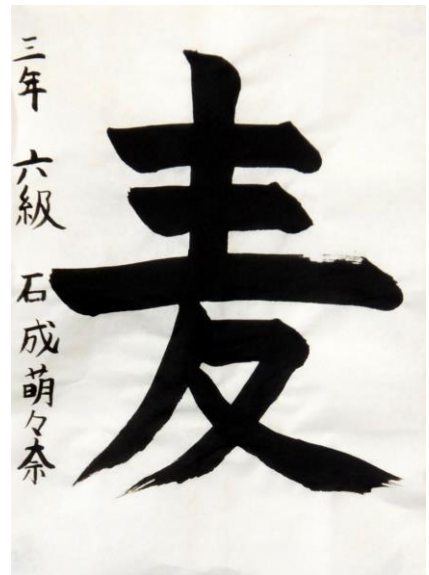 麦
三年 六級 石成萌々奈